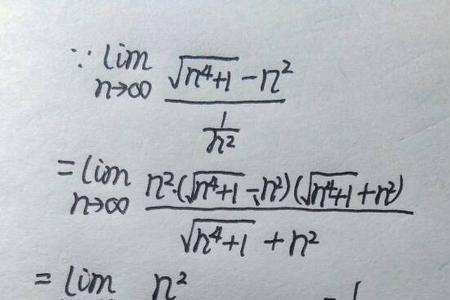 ∵ lim n→∞ (√(n⁴+1) - n²) / (1/n²)
= lim n→∞ n²·(√(n⁴+1) - n²)(√(n⁴+1) + n²) / (√(n⁴+1) + n²)
= lim n²